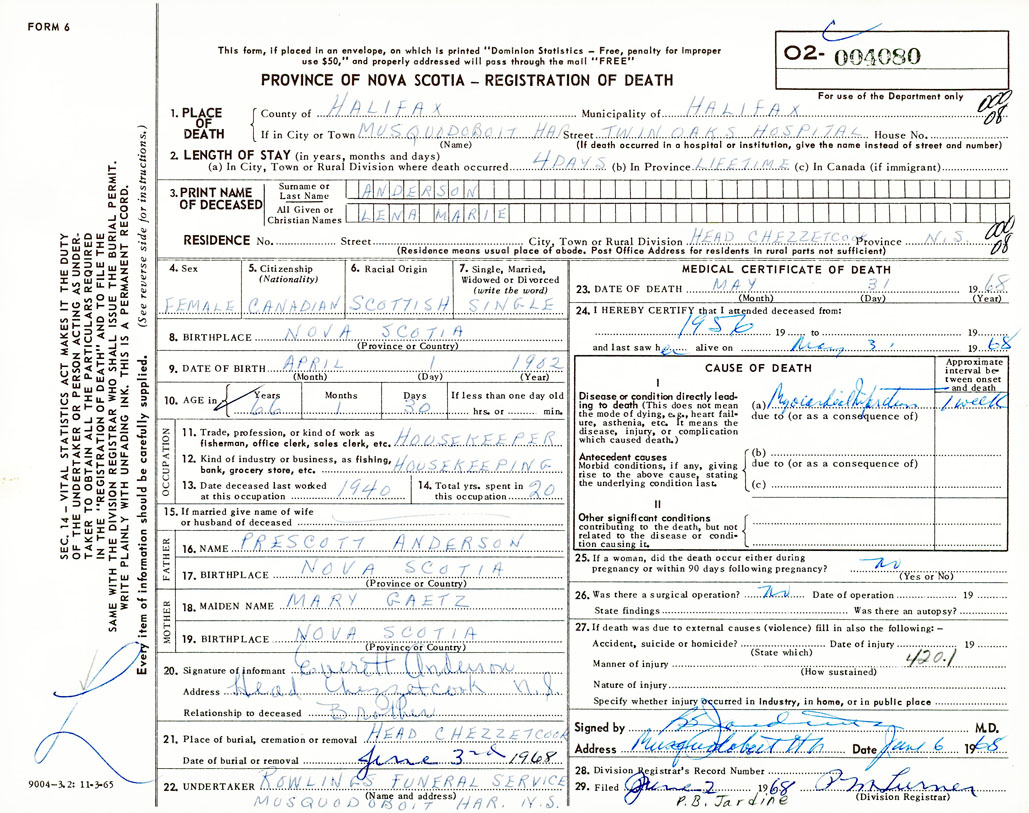 FORM 6
This form, if placed in an envelope, on which is printed "Dominion Statistics – Free, penalty for improper
use $50," and properly addressed will pass through the mail "FREE"
PROVINCE OF NOVA SCOTIA – REGISTRATION OF DEATH
O2- 004080
For use of the Department only
1. PLACE OF DEATH
County of HALIFAX Municipality of HALIFAX
000
08
If in City or Town MUSQUODOBOIT HAR Street TWIN OAKS HOSPITAL House No.
(Name) (If death occurred in a hospital or institution, give the name instead of street and number)
2. LENGTH OF STAY (in years, months and days)
(a) In City, Town or Rural Division where death occurred 4 DAYS (b) In Province LIFETIME (c) In Canada (if immigrant)
3. PRINT NAME OF DECEASED
Surname or Last Name ANDERSON
All Given or Christian Names LENA MARIE
000
08
RESIDENCE No. Street City, Town or Rural Division HEAD CHEZZETCOOK Province N.S.
(Residence means usual place of abode. Post Office Address for residents in rural parts not sufficient)
4. Sex
FEMALE
5. Citizenship
(Nationality)
CANADIAN
6. Racial Origin
SCOTTISH
7. Single, Married,
Widowed or Divorced
(write the word)
SINGLE
8. BIRTHPLACE NOVA SCOTIA
(Province or Country)
9. DATE OF BIRTH APRIL 1 1902
(Month) (Day) (Year)
10. AGE in Years Months Days If less than one day old
66 1 30 hrs. or min.
OCCUPATION
11. Trade, profession, or kind of work as
fisherman, office clerk, sales clerk, etc. HOUSEKEEPER
12. Kind of industry or business, as fishing,
bank, grocery store, etc. HOUSEKEEPING
13. Date deceased last worked
at this occupation 1940
14. Total yrs. spent in
this occupation 20
15. If married give name of wife
or husband of deceased
FATHER
16. NAME PRESCOTT ANDERSON
17. BIRTHPLACE NOVA SCOTIA
(Province or Country)
MOTHER
18. MAIDEN NAME MARY GAETZ
19. BIRTHPLACE NOVA SCOTIA
(Province or Country)
20. Signature of informant Everett Anderson
Address Head Chezzetcook N.S.
Relationship to deceased Brother
21. Place of burial, cremation or removal HEAD CHEZZETCOOK
Date of burial or removal June 3rd 1968
22. UNDERTAKER ROWLINGS FUNERAL SERVICE
(Name and address)
MUSQUODOBOIT HAR. N.S.
MEDICAL CERTIFICATE OF DEATH
23. DATE OF DEATH MAY 31 1968
(Month) (Day) (Year)
24. I HEREBY CERTIFY that I attended deceased from:
1956 19 to 19
and last saw her alive on May 31 1968
CAUSE OF DEATH
Approximate interval between onset and death
I
Disease or condition directly leading to death (This does not mean the mode of dying, e.g., heart failure, asthenia, etc. It means the disease, injury, or complication which caused death.)
(a) Myocardial Infarction 1 week
due to (or as a consequence of)
Antecedent causes
Morbid conditions, if any, giving rise to the above cause, stating the underlying condition last.
(b)
due to (or as a consequence of)
(c)
II
Other significant conditions
contributing to the death, but not related to the disease or condition causing it.
25. If a woman, did the death occur either during
pregnancy or within 90 days following pregnancy? no
(Yes or No)
26. Was there a surgical operation? no Date of operation 19
State findings Was there an autopsy?
27. If death was due to external causes (violence) fill in also the following: –
Accident, suicide or homicide? Date of injury 19
(State which)
Manner of injury 420.1
(How sustained)
Nature of injury
Specify whether injury occurred in Industry, in home, or in public place
Signed by M.D.
Address Musquodoboit Hr Date June 6 1968
28. Division Registrar's Record Number
29. Filed June 2 1968
P.B. Jardine
(Division Registrar)
SEC. 14 – VITAL STATISTICS ACT MAKES IT THE DUTY
OF THE UNDERTAKER OR PERSON ACTING AS UNDER-
TAKER TO OBTAIN ALL THE PARTICULARS REQUIRED
IN THE "REGISTRATION OF DEATH" AND TO FILE THE
SAME WITH THE DIVISION REGISTRAR WHO SHALL ISSUE THE BURIAL PERMIT.
WRITE PLAINLY WITH UNFADING INK. THIS IS A PERMANENT RECORD.
Every item of information should be carefully supplied. (See reverse side for instructions.)
9004–3.2: 11-3-65